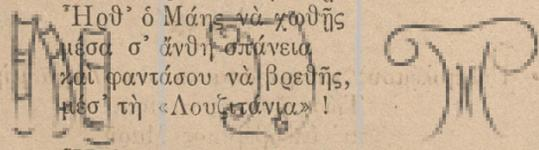 Ἦρθ' ὁ Μάης νὰ χωθῇς
μέσα σ' ἄνθη σπάνεια
καὶ φαντάσου νὰ βρεθῇς,
μέσ' τὴ «Λουζιτάνια» !